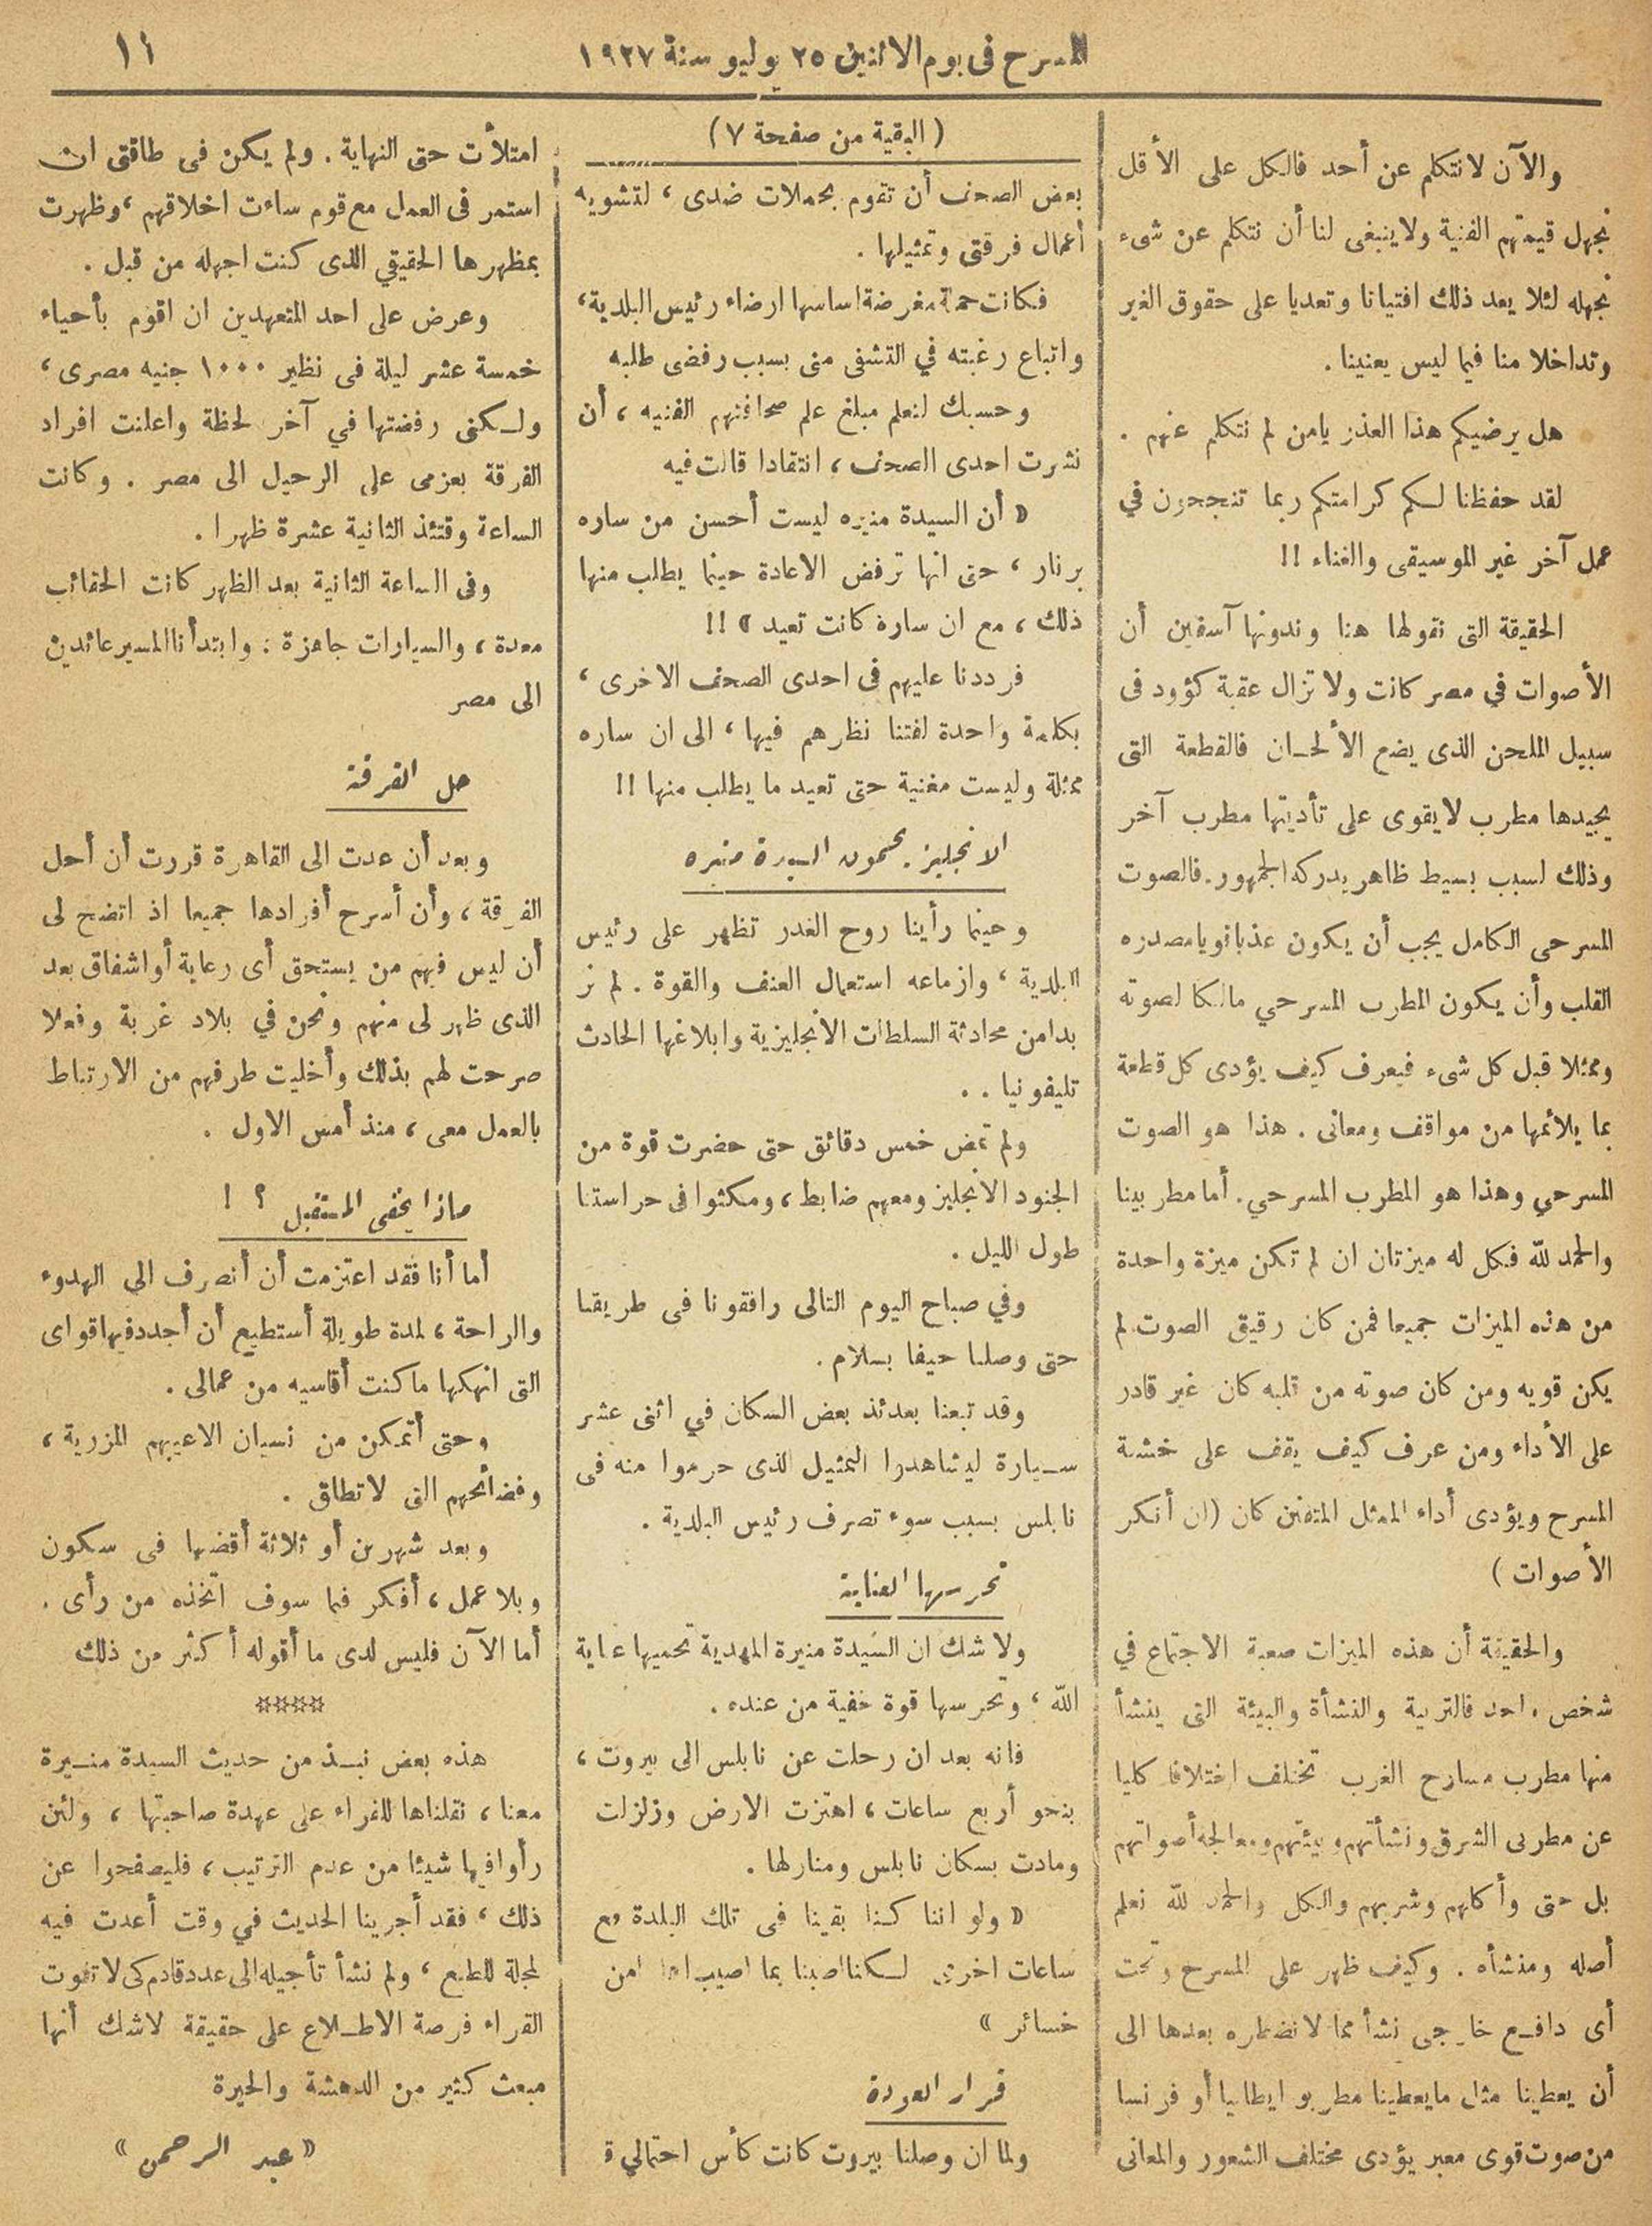 المسرح فى يوم الاثنين ٢٥ يوليو سنة ١٩٢٧
١١
والآن لا نتكلم عن أحد فالكل على الأقل
نجهل قيمتهم الفنية ولا ينبغى لنا أن نتكلم عن شىء
نجهله لئلا يعد ذلك افتيانا وتعديا على حقوق الغير
وتداخلا منا فيما ليس يعنينا .
هل يرضيكم هذا العذر يامن لم نتكلم عنهم .
لقد حفظنا لكم كرامتكم ربما تنجحون في
عمل آخر غير الموسيقى والغناء !!
الحقيقة التى نقولها هنا وندونها آسفين أن
الأصوات في مصر كانت ولا تزال عقبة كؤود فى
سبيل الملحن الذى يضع الألحـان فالقطعة التى
يجيدها مطرب لا يقوى على تأديتها مطرب آخر
وذلك لسبب بسيط ظاهر يدركه الجمهور . فالصوت
المسرحى الكامل يجب أن يكون عذبا قويا مصدره
القلب وأن يكون المطرب المسرحي مالكا لصوته
وممثلا قبل كل شىء فيعرف كيف يؤدى كل قطعة
بما يلائمها من مواقف ومعانى . هذا هو الصوت
المسرحي وهذا هو المطرب المسرحي . أما مطربينا
والحمد لله فكل له ميزتان ان لم تكن ميزة واحدة
من هذه الميزات جميعا فمن كان رقيق الصوت لم
يكن قويه ومن كان صوته من قلبه كان غير قادر
على الأداء ومن عرف كيف يقف على خشبة
المسرح ويؤدى أداء الممثل المتفنن كان (ان أنكر
الأصوات )
والحقيقة أن هذه الميزات صعبة الاجتماع في
شخص واحد فالتربية والنشأة والبيئة التى ينشأ
منها مطرب مسارح الغرب تختلف اختلافا كليا
عن مطربى الشرق ونشأتهم وبيئتهم ومعالجة أصواتهم
بل حتى وأكلهم وشربهم والكل والحمد لله نعلم
أصله ومنشأه . وكيف ظهر على المسرح وتحت
أى دافـع خارجى نشأ مما لا نضطره بعدها الى
أن يعطينا مثل ما يعطينا مطربو ايطاليا أو فرنسا
من صوت قوى معبر يؤدى مختلف الشعور والمعانى
( البقية من صفحة ٧ )
بعض الصحف أن تقوم بحملات ضدى ، لتشويه
أعمال فرقتى وتمثيلها .
فكانت حملة مغرضة اساسها ارضاء رئيس البلدية ،
واتباع رغبته في التشفى منى بسبب رفضى طلبه
وحسبك لتعلم مبلغ علم صحافتهم الفنيه ، أن
نشرت احدى الصحف ، انتقادا قالت فيه
« أن السيدة منيره ليست أحسن من ساره
برنار ، حتى انها ترفض الاعادة حينما يطلب منها
ذلك ، مع ان ساره كانت تعيد » !!
فرددنا عليهم فى احدى الصحف الاخرى ،
بكلمة واحدة لفتنا نظرهم فيها ، الى ان ساره
ممثلة وليست مغنية حتى تعيد ما يطلب منها !!
الانجليز يحمون السيدة منيره
وحينما رأينا روح الغدر تظهر على رئيس
البلدية ، وازماعه استعمال العنف والقوة . لم نر
بدا من محادثة السلطات الانجليزية وابلاغها الحادث
تليفونيا . .
ولم تمض خمس دقائق حتى حضرت قوة من
الجنود الانجليز ومعهم ضابط ، ومكثوا فى حراستنا
طول الليل .
وفي صباح اليوم التالى رافقونا فى طريقنا
حتى وصلنا حيفا بسلام .
وقد تبعنا بعدئذ بعض السكان في اثنى عشر
سـيارة ليشاهدوا التمثيل الذى حرموا منه فى
نابلس بسبب سوء تصرف رئيس البلدية .
تحرسها العناية
ولا شك ان السيدة منيرة المهدية تحميها عناية
الله ، وتحرسها قوة خفية من عنده .
فانه بعد ان رحلت عن نابلس الى بيروت ،
بنحو أربع ساعات ، اهتزت الارض وزلزلت
ومادت بسكان نابلس ومنازلها .
« ولو اننا كـنا بقينا فى تلك البلدة بضع
ساعات اخرى لـكنا اصبنا بما اصيب اهلها من
خسائر »
قرار العودة
ولما ان وصلنا بيروت كانت كأس احتمالي قد
امتلأت حتى النهاية . ولم يكن فى طاقتى ان
استمر فى العمل مع قوم ساءت اخلاقهم ، وظهرت
بمظهرها الحقيقي الذى كنت اجهله من قبل .
وعرض على احد المتعهدين ان اقوم بأحياء
خمسة عشر ليلة فى نظير ١٠٠٠ جنيه مصرى ،
ولـكنى رفضتها في آخر لحظة واعلنت افراد
الفرقة بعزمى على الرحيل الى مصر . وكانت
الساعة وقتئذ الثانية عشرة ظهرا .
وفى الساعة الثانية بعد الظهر كانت الحقائب
معدة ، والسيارات جاهزة : وابتدأنا المسير عائدين
الى مصر
حل الفرقة
وبعد أن عدت الى القاهرة قررت أن أحل
الفرقة ، وأن أسرح أفرادها جميعا اذ اتضح لى
أن ليس فيهم من يستحق أى رعاية أو اشفاق بعد
الذى ظهر لى منهم ونحن في بلاد غربة وفعلا
صرحت لهم بذلك وأخليت طرفهم من الارتباط
بالعمل معى ، منذ أمس الاول .
ماذا يخفى المستقبل ؟ !
أما أنا فقد اعتزمت أن أنصرف الى الهدوء
والراحة ، لمدة طويلة أستطيع أن أجدد فيها قواى
التى انهكها ما كنت أقاسيه من عمالى .
وحتى أتمكن من نسيان الاعيبهم المزرية ،
وفضائحهم التى لا تطاق .
وبعد شهرين أو ثلاثة أقضيها فى سكون
وبلا عمل ، أفكر فيما سوف اتخذه من رأى .
أما الآن فليس لدى ما أقوله أكثر من ذلك
☆☆☆☆
هذه بعض نبـذ من حديث السيدة منـيرة
معنا ، نقلناها للقراء على عهدة صاحبتها ، ولئن
رأوا فيها شيئا من عدم الترتيب ، فليصفحوا عن
ذلك ، فقد أجرينا الحديث في وقت أعدت فيه
لمجلة للطبع ، ولم نشأ تأجيله الى عدد قادم كى لا تفوت
القراء فرصة الاطـلاع على حقيقة لا شك أنها
مبعث كثير من الدهشة والحيرة
« عبد الرحمن »